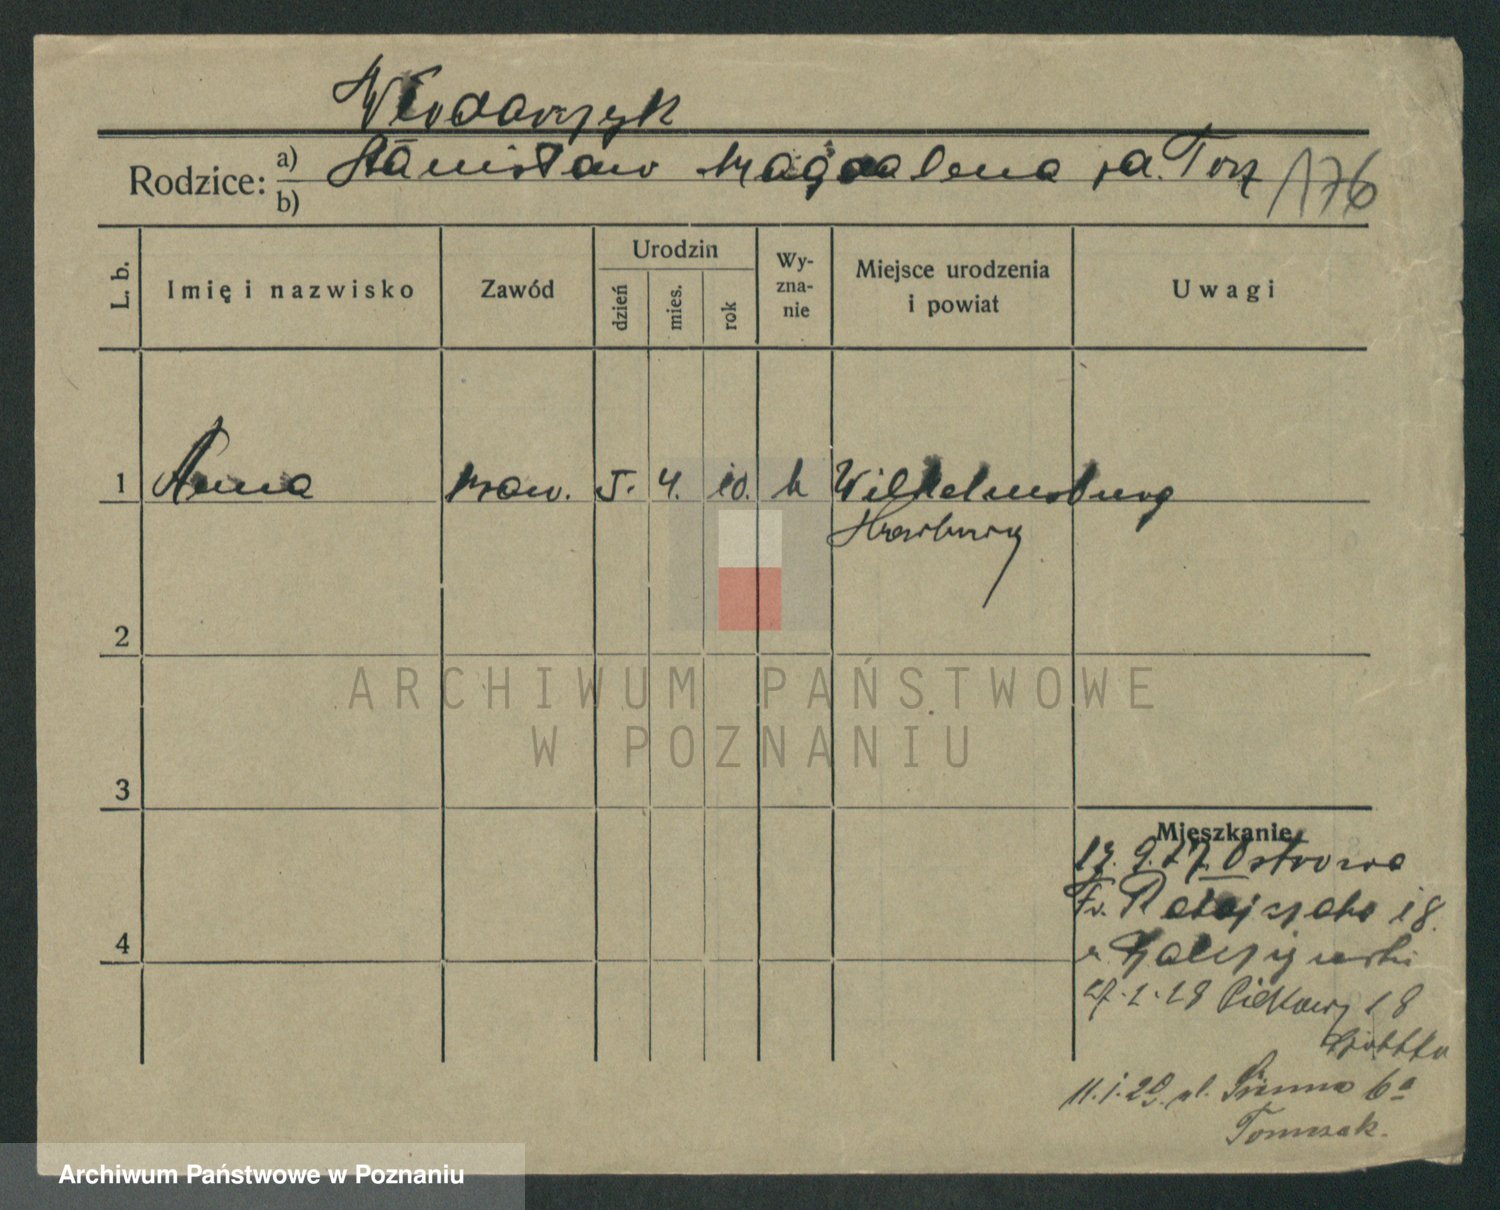 Włodarczyk
Rodzice: a) Stanisław Magdalena
b)
176
L. b. Imię i nazwisko Zawód Urodzin dzień mies. rok Wy-zna-nie Miejsce urodzenia i powiat Uwagi
1 Anna 5. 4. 10. k Wilhelmsburg
2
ARCHIWUM PAŃSTWOWE
W POZNANIU
3
Mieszkanie
17. 9. 27. Ostrowa
Fr. Ratajczaka 18.
4
27. 1. 28 18
11. 1. 29. ul. 6a
Tomczak.
Archiwum Państwowe w Poznaniu